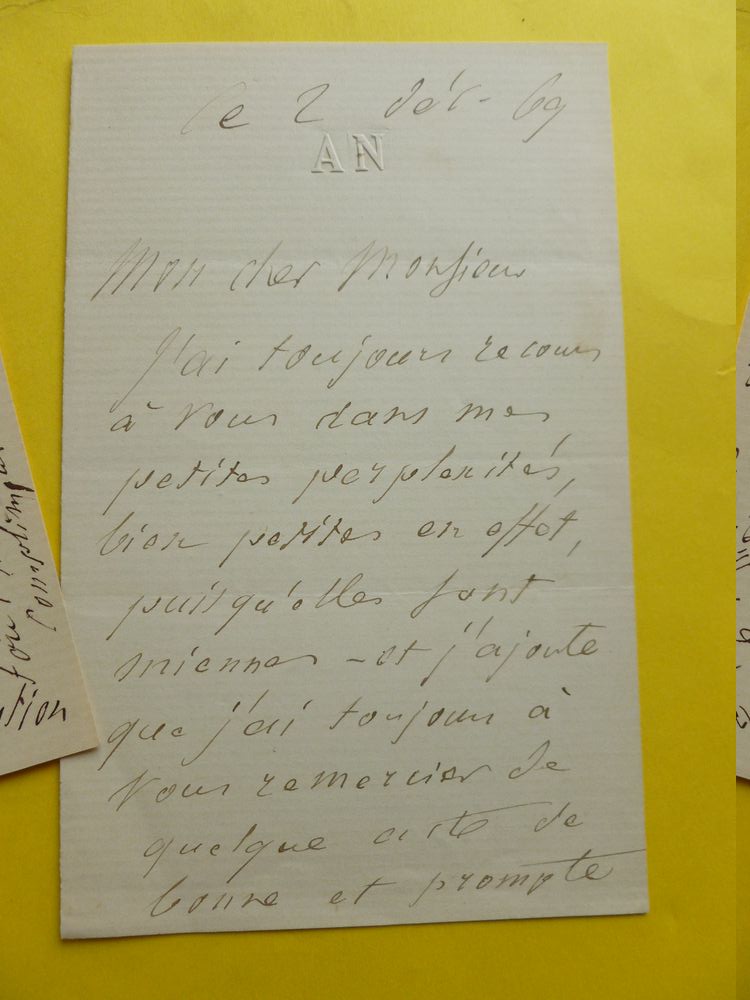 Le 2 Déc. 69
AN
Mon cher Monsieur
J'ai toujours recours
à vous dans mes
petites perplexités,
bien petites en effet,
puisqu'elles sont
miennes - et j'ajoute
que j'ai toujours à
vous remercier de
quelque acte de
bonne et prompte